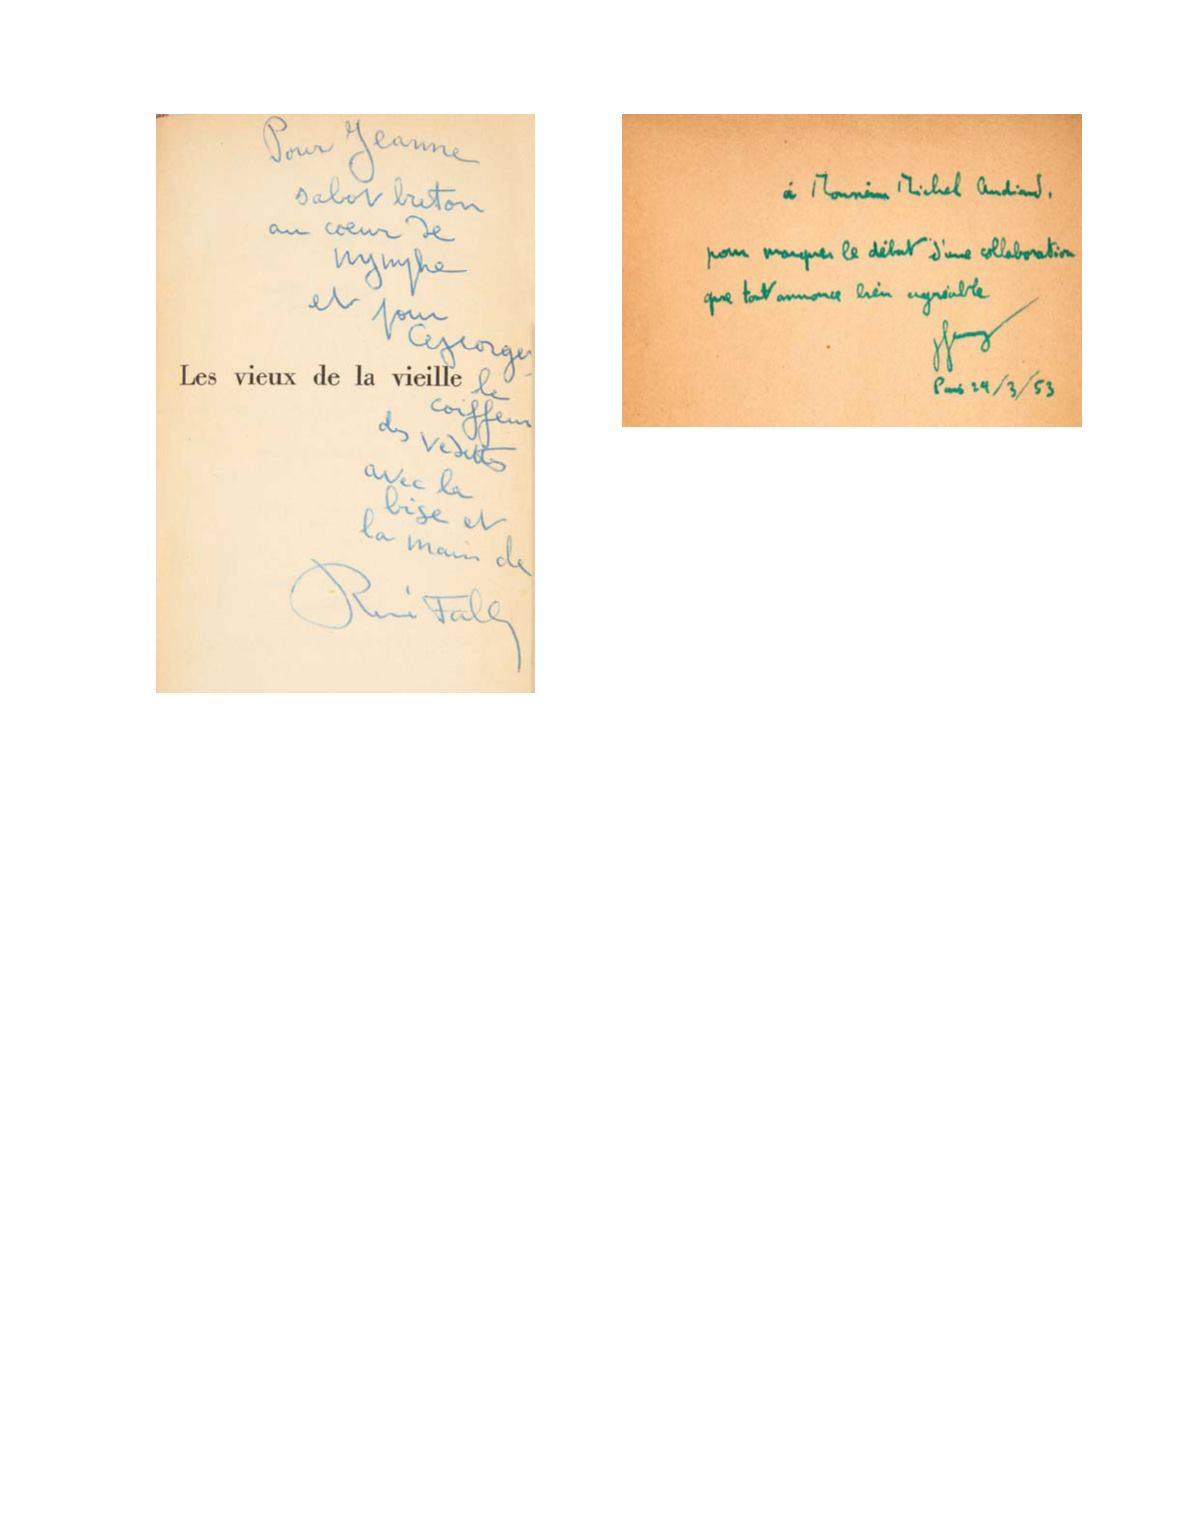 Pour Jeanne
sabot breton
au coeur de
nymphe
et pour
Georges
Les vieux de la vieille
le
coiffeur
des vedettes
avec la
bise et
la main de
René Fallet
à Monsieur Michel Audiard,
pour marquer le début d'une collaboration
que tout annonce bien agréable
Paris 24/3/53